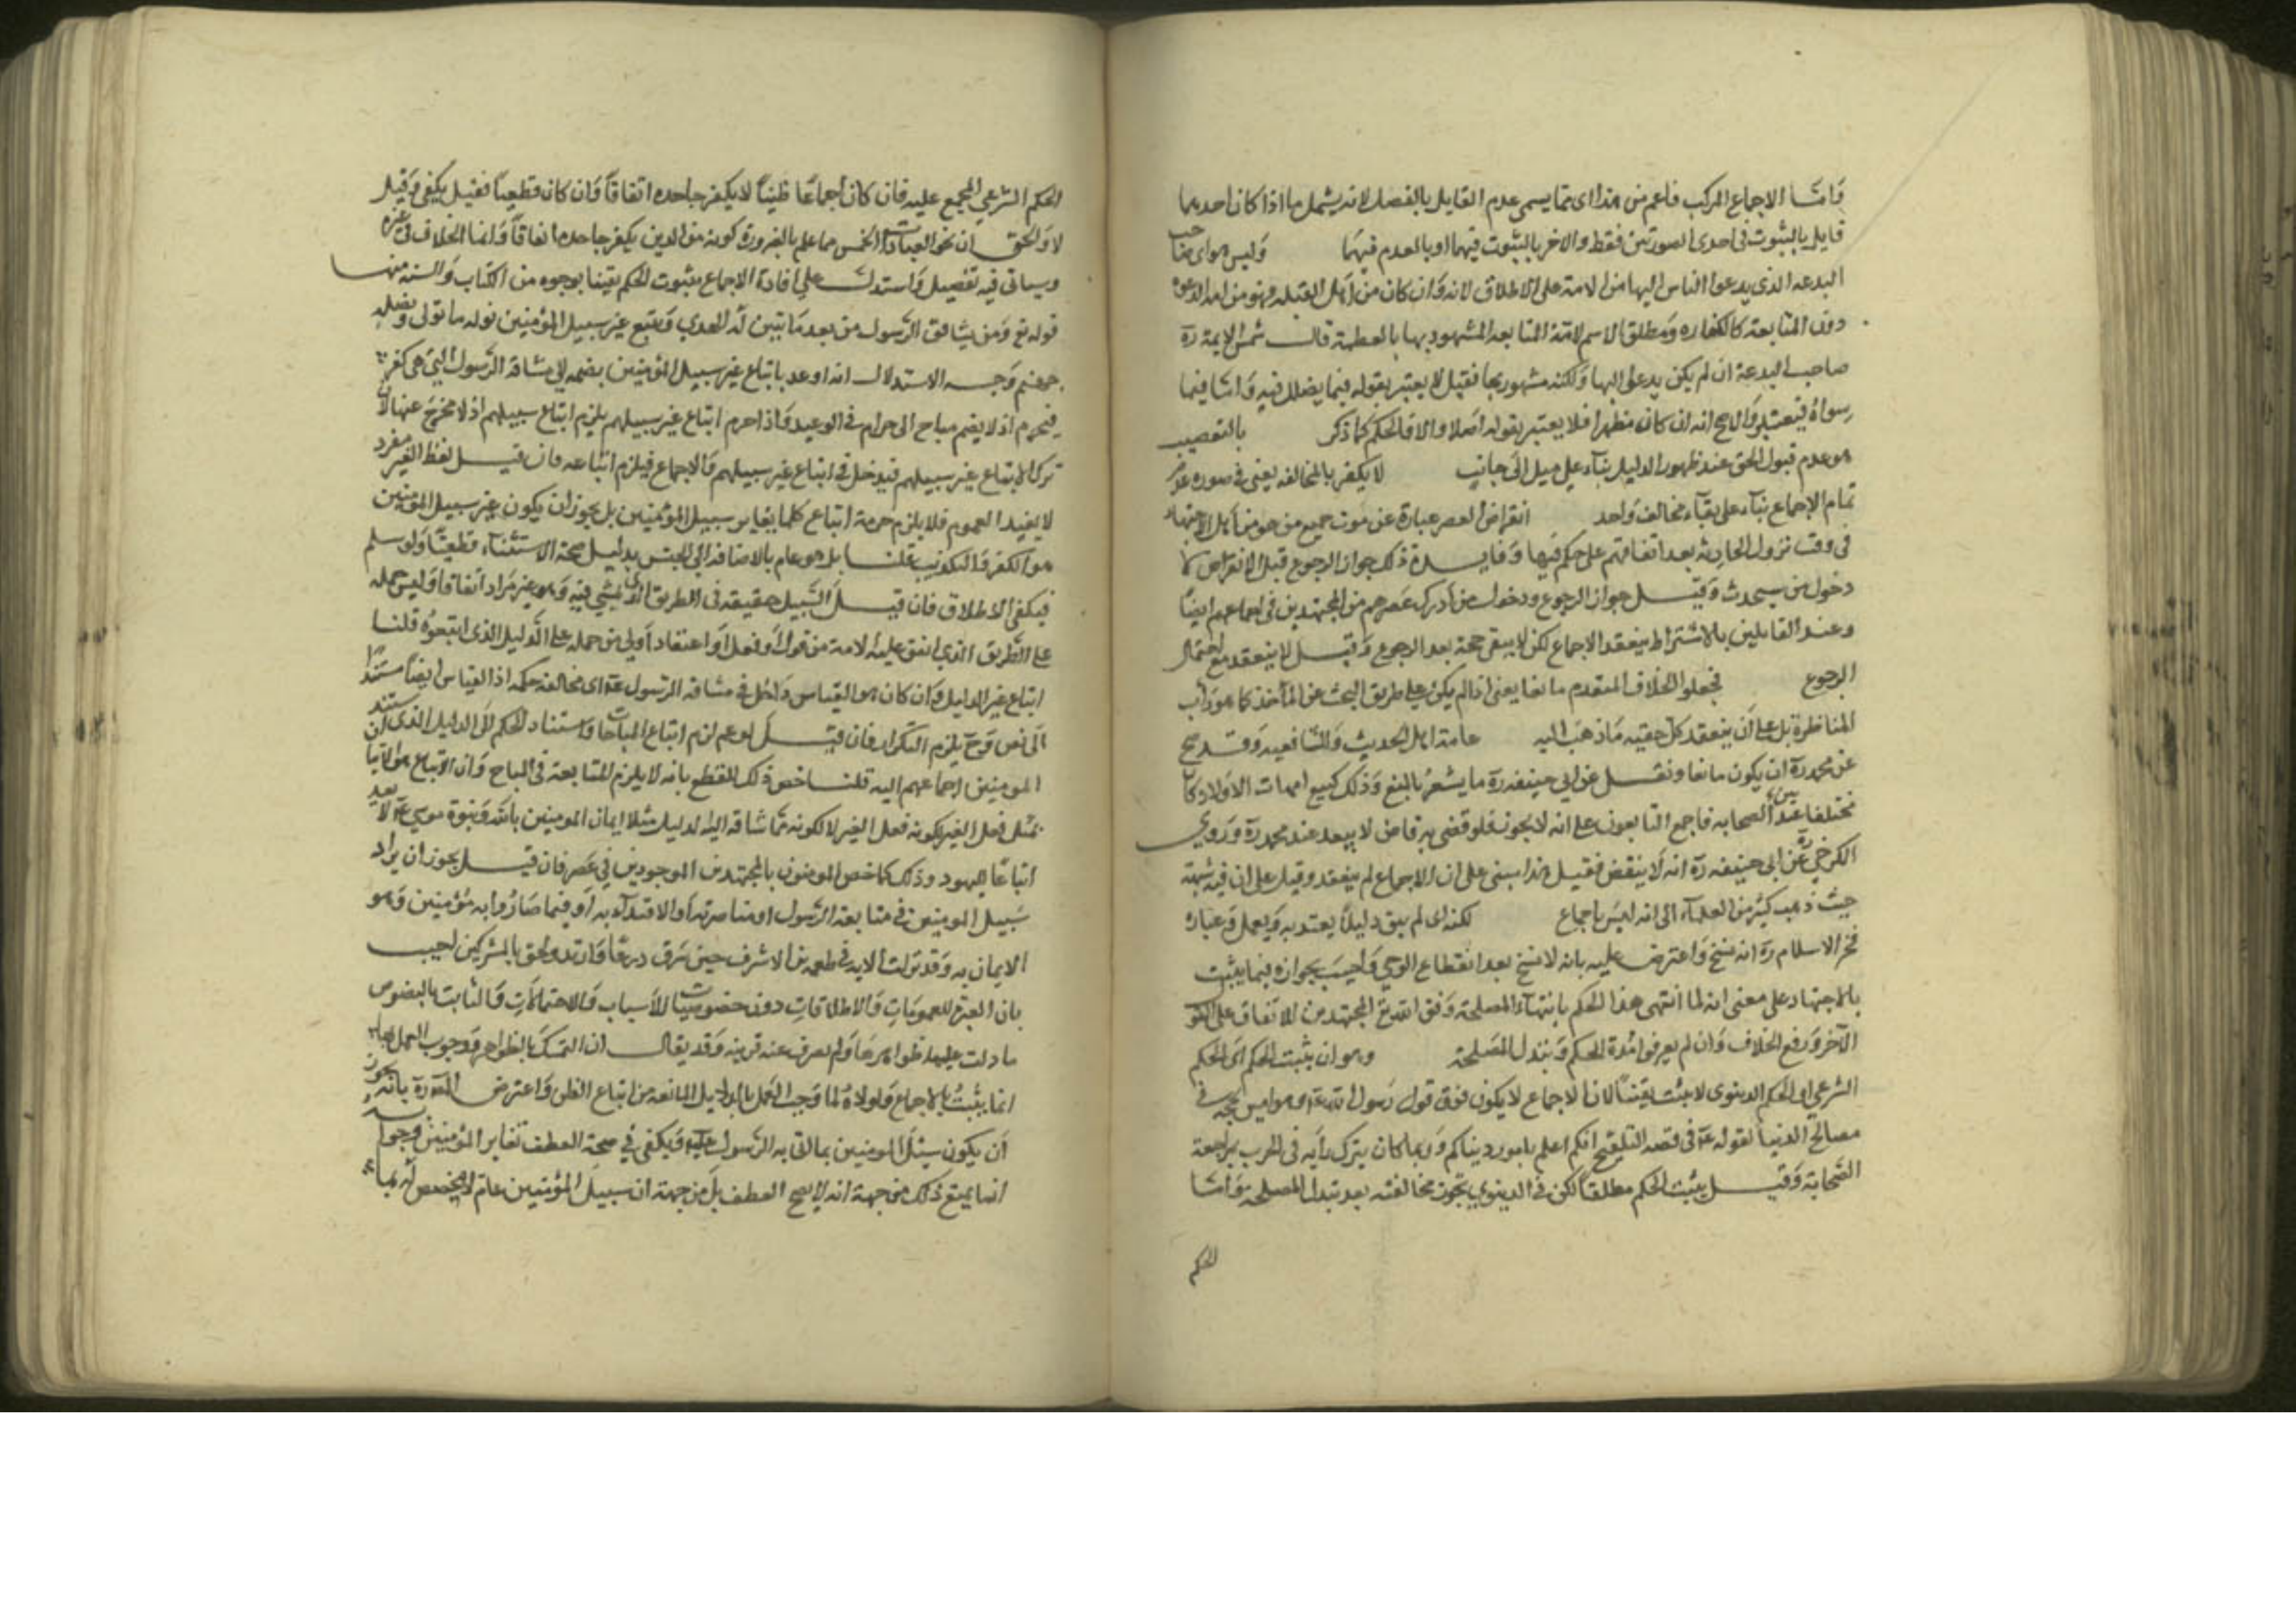 وَامّا الاجماع المركب فاعم من هذا اى مما يسمى عدم القايل بالفصل لانه يشمل ما اذا كان احدهما
قايل بالثبوت فى احدى الصورتين فقط والاخر بالثبوت فيهما او بالعدم فيهما وَليس هو اى صاحب
البدعه الذى يدعوا الناس اليها من الامة على الاطلاق لانه وَان كان من اهل القبله فهو من امة الدعوة
دون المتابعة كالكفار وَمطلق الاسم لامة المتابعه المشهود بها بالعصمة قال شمس الايمة رة
صاحب البدعة ان لم يكن يدعوا اليها وَلكنه مشهور بها فقيل لا يعتبر بقوله فيما يضلل فيه وَامّا فيما
سواه فيعتبر وَالاصح انه ان كان مظهرا فلا يعتبر بقوله اصلا والا فالحكم كما ذكر بالتعصب
هو عدم قبول الحق عند ظهور الدليل بناء على ميل الى جانب لا يكفر بالمخالفه يعنى فى صوره عدم
تمام الاجماع بناء على بقاء مخالف وَاحد انقراض العصر عبارة عن موت جميع من هو من اهل الاجتهاد
فى وقت نزول الحادثه بعد اتفاقهم على حكم فيها وَفايدة ذلك جواز الرجوع قبل الانقراض لا
دخول من سيحدث وَقيل جواز الرجوع ودخول من ادرك عصرهم من المجتهدين فى اجماعهم ايضاً
وعند القايلين بالاشتراط ينعقد الاجماع لكن لا يبقى حجة بعد الرجوع وَقيل لا ينعقد مع احتمال
الرجوع فجعلوا الخلاف المتقدم مانعا يعنى اذا لم يكن على طريق البحث عن المأخذ كما هو دأب
المناظرة بل على ان يعتقد كل حقيه ما ذهب اليه عامة اهل الحديث وَالشافعيه وَقد صح
عن محمد رة ان يكون مانعا ونقل عن ابى حنيفه رة ما يشعر بالمنع وَذلك كبيع امهات الاولاد كان
مختلفا بين الصحابه فاجمع التابعون على انه لا يجوز فلو قضى به قاض لا ينفذ عند محمد رة وَروى
الكرخى عن ابى حنيفه رة انه لا ينقض فقيل هذا مبنى على ان الاجماع لم ينعقد وقيل على ان فيه شبهة
حيث ذهب كثير من العلماء الى انه ليس باجماع لكنه اى لم يبق دليلاً يعتد به وَيعمل وَعبارة
فخر الاسلام رة انه نسخ وَاعترض عليه بانه لا نسخ بعد انقطاع الوحى وَاجيب بجوازه فيما يثبت
بالاجتهاد على معنى انه لما انتهى هذا الحكم بانتهاء المصلحة وَفق الله تع المجتهدين للاتفاق على القول
الآخر وَرفع الخلاف وَان لم يعرفوا مدة الحكم وَتبدل المصلحة وهو ان يثبت الحكم اى الحكم
الشرعى او الحكم الدنيوى لا يثبت يقيناً لان الاجماع لا يكون فوق قول رسول الله عم وهو ليس بحجة فى
مصالح الدنيا لقوله عم فى قصة التلقيح انتم اعلم بامور دنياكم وَربما كان يترك رأيه فى الحرب بمراجعة
الصحابة وَقيل يثبت الحكم مطلقاً لكن فى الدنيوى يجوز مخالفته بعد تبدل المصلحة وَامّا
الحكم
الحكم الشرعى المجمع عليه فان كان اجماعا ظنياً لا يكفر جاحده اتفاقاً وَان كان قطعياً فقيل يكفر وَقيل
لا وَالحق ان نحو العبادات الخمس مما علم بالضرورة كونه من الدين يكفر جاحده اتفاقاً وَانما الخلاف فى غيره
وسياتى فيه تفصيل وَاستدل على افادة الاجماع بثبوت الحكم يقينا بوجوه من الكتاب وَالسنه منها
قوله تع وَمن يشاقق الرسول من بعد ما تبين له الهدى وَيتبع غير سبيل المؤمنين نوله ما تولى ونصله
جهنم وَجه الاستدلال انه اوعد باتباع غير سبيل المؤمنين بضمه الى مشاقة الرسول التى هى كفر
فيحرم اذ لا يضم مباح الى حرام فى الوعيد وَاذا حرم اتباع غير سبيلهم يلزم اتباع سبيلهم اذ لا مخرج عنهما لان
ترك الاتباع غير سبيلهم فيدخل فى اتباع غير سبيلهم وَالاجماع فيلزم اتباعه فان قيل لفظ الغير مفرد
لا يفيد العموم فلا يلزم حرمة اتباع كل ما يغاير سبيل المؤمنين بل يجوز ان يكون غير سبيل المؤمنين
هو الكفر وَالتكذيب قلنا بل هو عام بالاضافة الى الجنس بدليل صحة الاستثناء قطعيا وَلو سلم
فيكفى الاطلاق فان قيل السبيل حقيقة فى الطريق الذى يمشى فيه وَهو غير مراد اتفاقا وَليس حمله
على الطريق الذى اتفق عليه الامة من قول او فعل او اعتقاد اولى من حمله على الدليل الذى اتبعوه قلنا
اتباع غير الدليل وَان كان هو القياس داخل فى مشاقة الرسول عم اى مخالفة حكمه اذ القياس ايضاً مستند
الى نص وَح يلزم التكرار فان قيل لو عم لزم اتباع المباحات وَاستناد الحكم الى الدليل الذى استند
المومنين اجماعهم اليه قلنا خص ذلك للقطع بانه لا يلزم المتابعة فى المباح وَان الاتباع هو الاتيان
بمثل فعل الغير لكونه فعل الغير لا لكونه مما ساقه اليه الدليل مثلا ايمان المومنين بالله وَنبوة موسى عم لا يعد
اتباعا لليهود وذلك كما خص المومنون بالمجتهدين الموجودين فى عصر فان قيل يجوز ان يراد
سبيل المومنين فى متابعة الرسول او مناصرته او الاقتداء به او فيما صاروا به مؤمنين وَهو
الايمان به وَقد نزلت الآيه فى طعمه بن الاشرف حين سرق درعا وَارتد ولحق بالمشركين اجيب
بان العبرة للعمومات وَالاطلاقات دون خصوصيات الاسباب وَالاحتمالات وَالثابت بالنصوص
ما دلت عليها ظواهرها وَلم يصرف عنه قرينه وَقد يقال ان التمسك بالظواهر وَوجوب العمل بها
انما يثبت بالاجماع وَلولاه لما وجب العمل بالدلايل المانعة من اتباع الظن وَاعترض بانه يجوز
ان يكون سبيل المومنين بما اتى به الرسول عليه وَيكفى فى صحة العطف تغاير المؤمنين
انما يمنع ذلك من جهة انه لا يصح العطف بل من جهة ان سبيل المؤمنين عام لا مخصص له بما